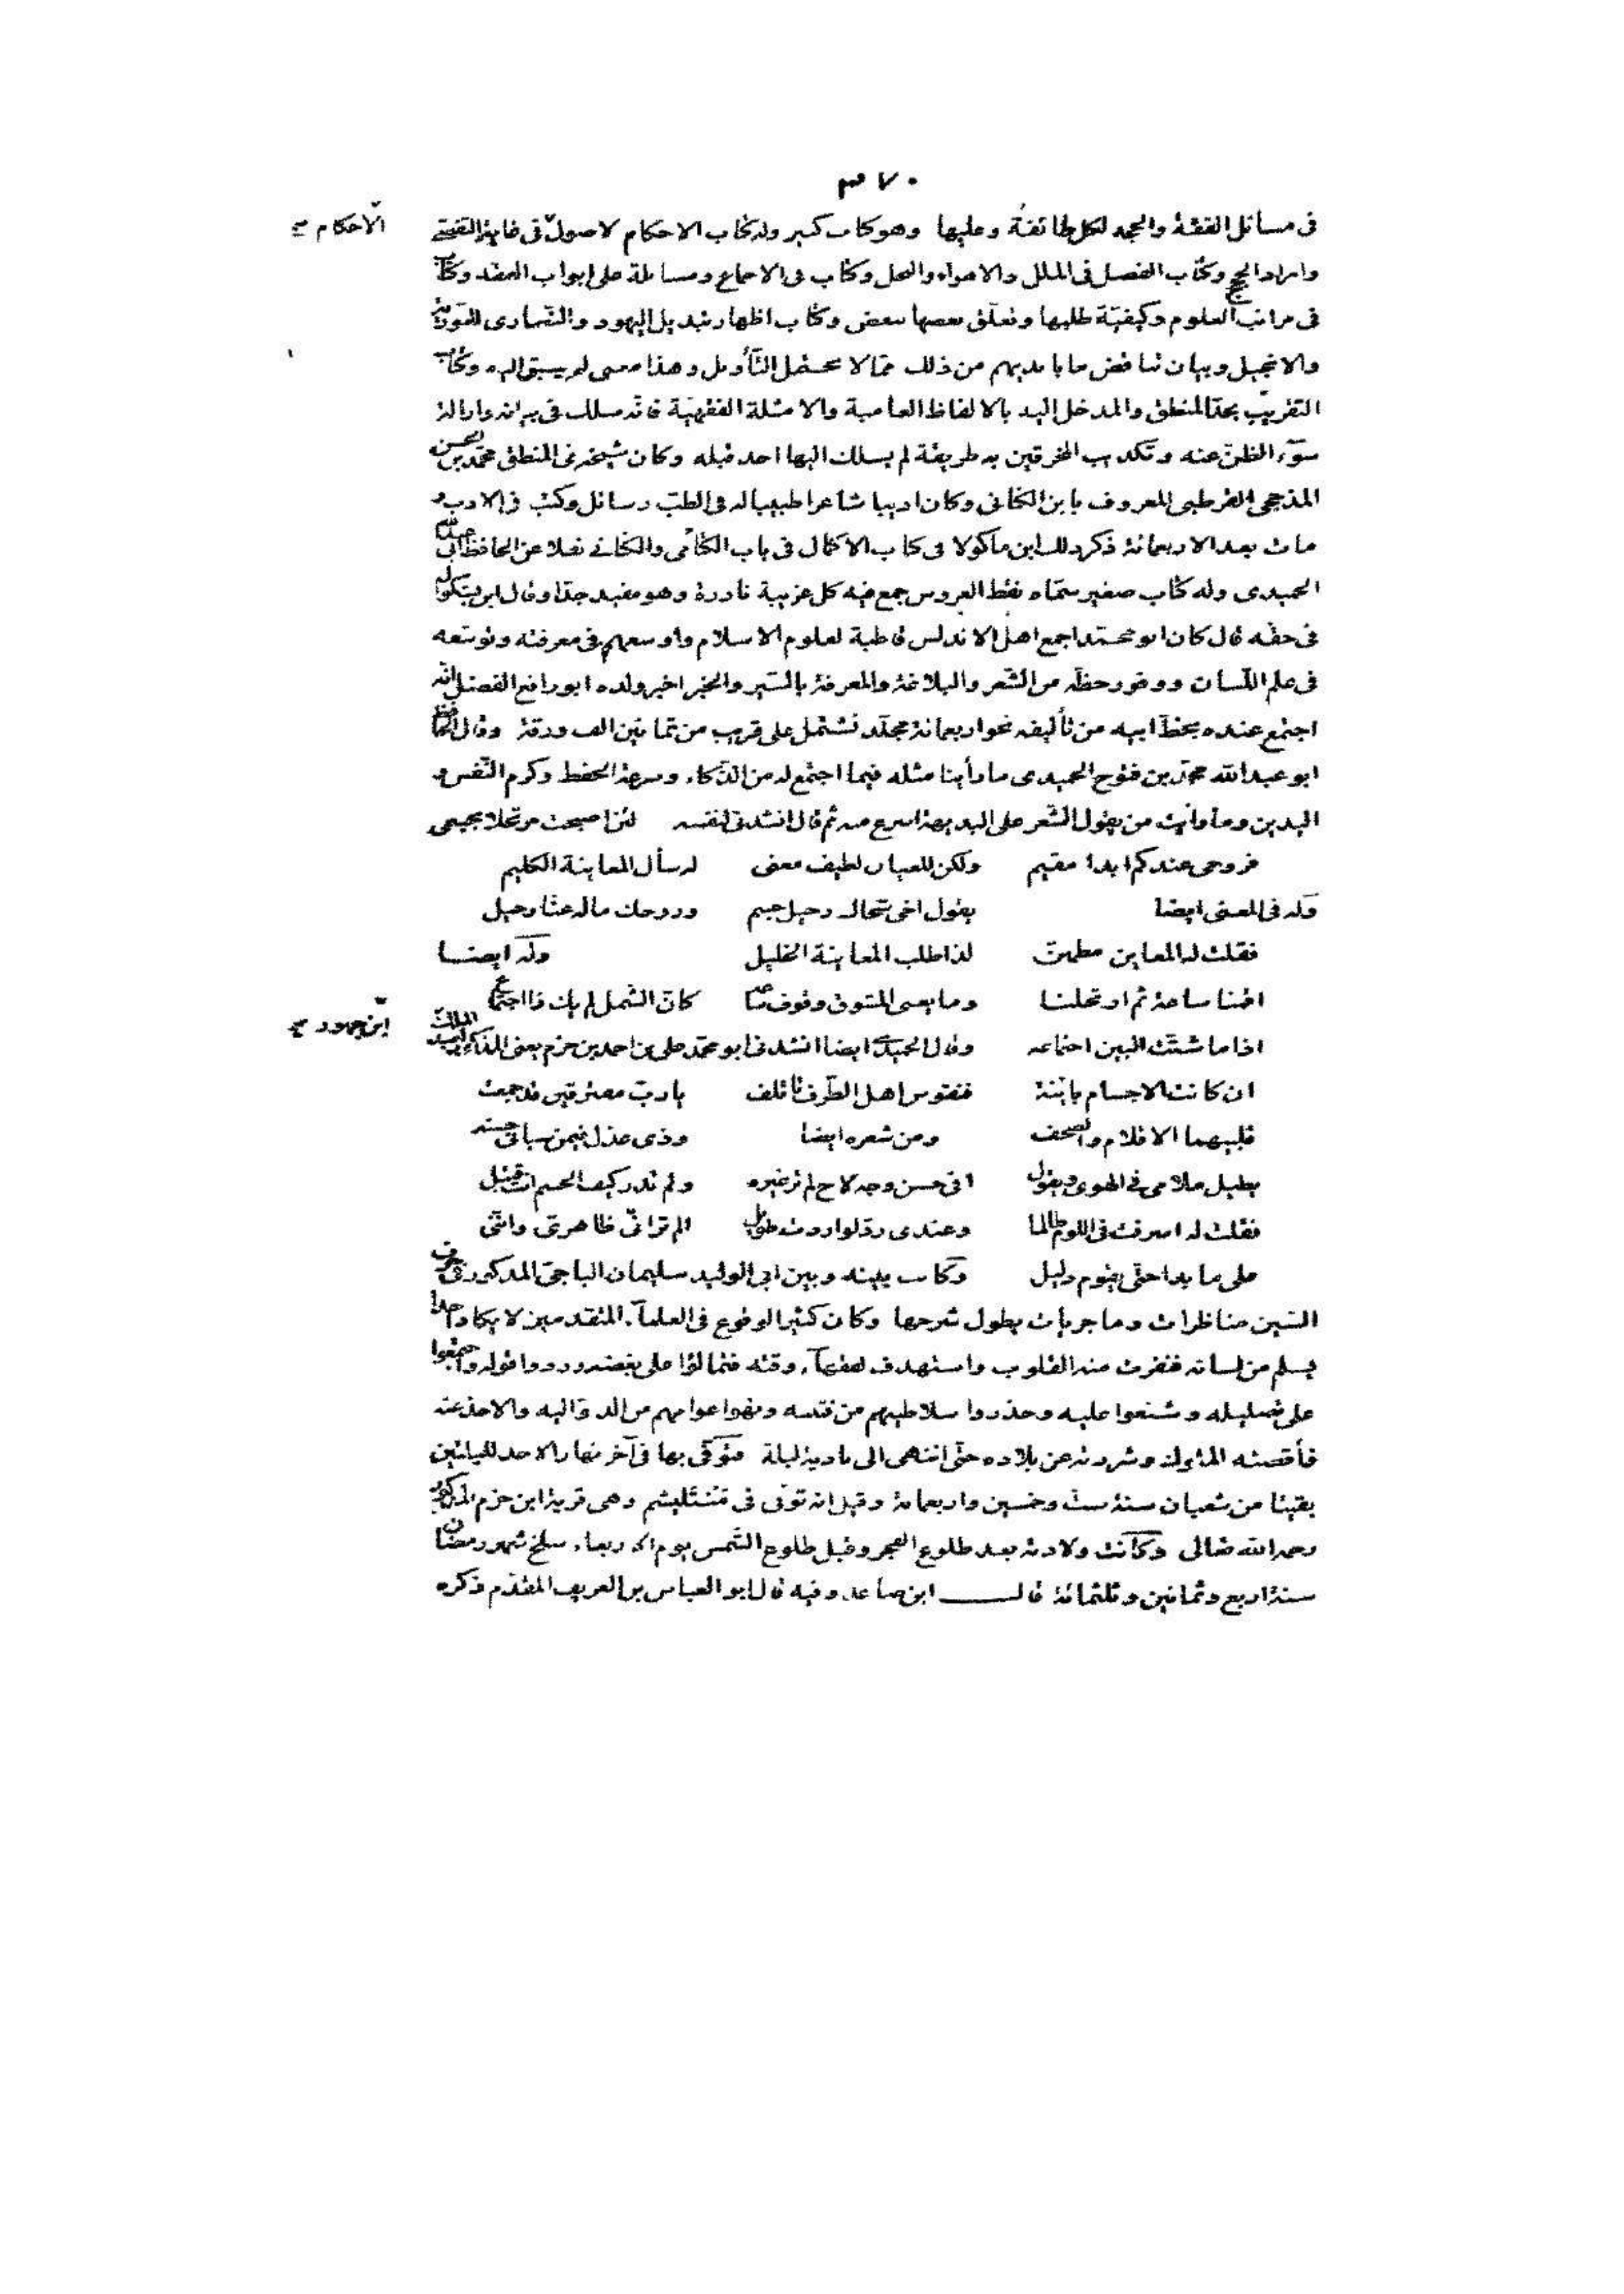 ٣٧٠
فى مسائل الفقه والحجة لكل طائفة وعليها وهو كتاب كبير وله كتاب الاحكام لاصول فى غاية التقصى
الاحكام صح
وايراد الحجج وكتاب الفصل فى الملل والاهواء والنحل وكتاب فى الاجماع ومسائله على ابواب الفقه وكتاب
فى مراتب العلوم وكيفيّة طلبها وتعلّق بعضها ببعض وكتاب اظهار تبديل اليهود والنّصارى للتورية
والانجيل وبيان تناقض ما بايديهم من ذلك ممّا لا يحتمل التّأويل وهذا معنى لم يسبق اليه وكتاب
التقريب بحدّ المنطق والمدخل اليه بالالفاظ العامية والامثلة الفقهيّة فانّه سلك فى بيانه وازالة
سوء الظنّ عنه وتكذيب المخرقين به طريقة لم يسلك اليها احد قبله وكان شيخه فى المنطق محمّد بن الحسن
المذحجى القرطبى المعروف بابن الكتانى وكان اديبا شاعرا طبيبا له فى الطبّ رسائل وكتب فى الادب و
مات بعد الاربعمائة ذكر ذلك ابن ماكولا فى كتاب الاكمال فى باب الكتّانى والكتانى نقلا عن الحافظ ابى عبد الله
الحميدى وله كتاب صغير سمّاه نقط العروس جمع فيه كل غريبة نادرة وهو مفيد جدّا وقال ابن بشكوال
فى حقّه قال كان ابو محمّد اجمع اهل الاندلس قاطبة لعلوم الاسلام واوسعهم فى معرفته وتوسّعه
فى علم اللّسان ووفور حظّه من الشّعر والبلاغة والمعرفة بالسّير والخبر اخبر ولده ابو رافع الفضل انّه
اجتمع عنده بخطّ ابيه من تأليفه نحو اربعمائة مجلّد تشتمل على قريب من ثمانين الف ورقة وقال الحافظ
ابو عبد الله محمّد بن فتوح الحميدى ما رأينا مثله فيما اجتمع له من الذّكاء وسرعة الحفظ وكرم النّفس و
البدين وما رأيت من يقول الشّعر على البديهة اسرع منه ثم قال انشدنى لنفسه لئن اصبحت مرتحلا بجسمى
فروحى عندكم ابدا مقيم ولكن للعيان لطيف معنى له سأل المعاينة الكليم
وله فى المعنى ايضا يقول اخى شجاك رحيل جسم وروحك ماله عنّا رحيل
فقلت له المعاين مطمئن لذا طلب المعاينة الخليل وله ايضا
اقمنا ساعة ثم ارتحلنا وما يغنى المشوق وقوف ساعه كانّ الشّمل لم يك ذا اجتماع
اذا ما شتّت البين اجتماعه وقال الحميدى ايضا انشدنى ابو محمّد على بن احمد بن حزم يعنى المذكور لعبد الملك
ابن جهور صح
ان كانت الاجسام باينة فنفوس اهل الظّرف تأتلف يا ربّ مفترقين قد جمعت
قلبيهما الاقلام والصحف ومن شعره ايضا وذى عذل فيمن سبانى حسنه
يطيل ملامى فى الهوى ويقول افى حسن وجه لاح لم تر غيره ولم تدر كيف الجسم انت قتيل
فقلت له اسرفت فى اللوم ظالما وعندى ردّ لو اردت طويل الم تر انّى ظاهرى وانّنى
على ما بدا حتّى يقوم دليل وكانت بينه وبين ابى الوليد سليمان الباجى المذكور فى حرف
السّين مناظرات وماجريات يطول شرحها وكان كثير الوقوع فى العلماء المتقدمين لا يكاد احد
يسلم من لسانه فنفرت منه القلوب واستهدف لفقهاء وقته فتمالؤا على بغضه وردوا قوله واجتمعوا
على تضليله وشنعوا عليه وحذروا سلاطينهم من فتنته ونهوا عوامهم من الدنوّ اليه والاخذ عنه
فأقصته الملوك وشردته عن بلاده حتّى انتهى الى بادية لبلة فتوفّى بها فى آخر نهار الاحد لليلتين
بقيتا من شعبان سنة ستّ وخمسين واربعمائة وقيل انه توفّى فى منتليشم وهى قرية ابن حزم المذكور
رحمه الله تعالى وكانت ولادته بعد طلوع الفجر وقبل طلوع الشّمس يوم الاربعاء سلخ شهر رمضان
سنة اربع وثمانين وثلثمائة قال ابن صاعد وفيه قال ابو العباس بن العريف المقدّم ذكره